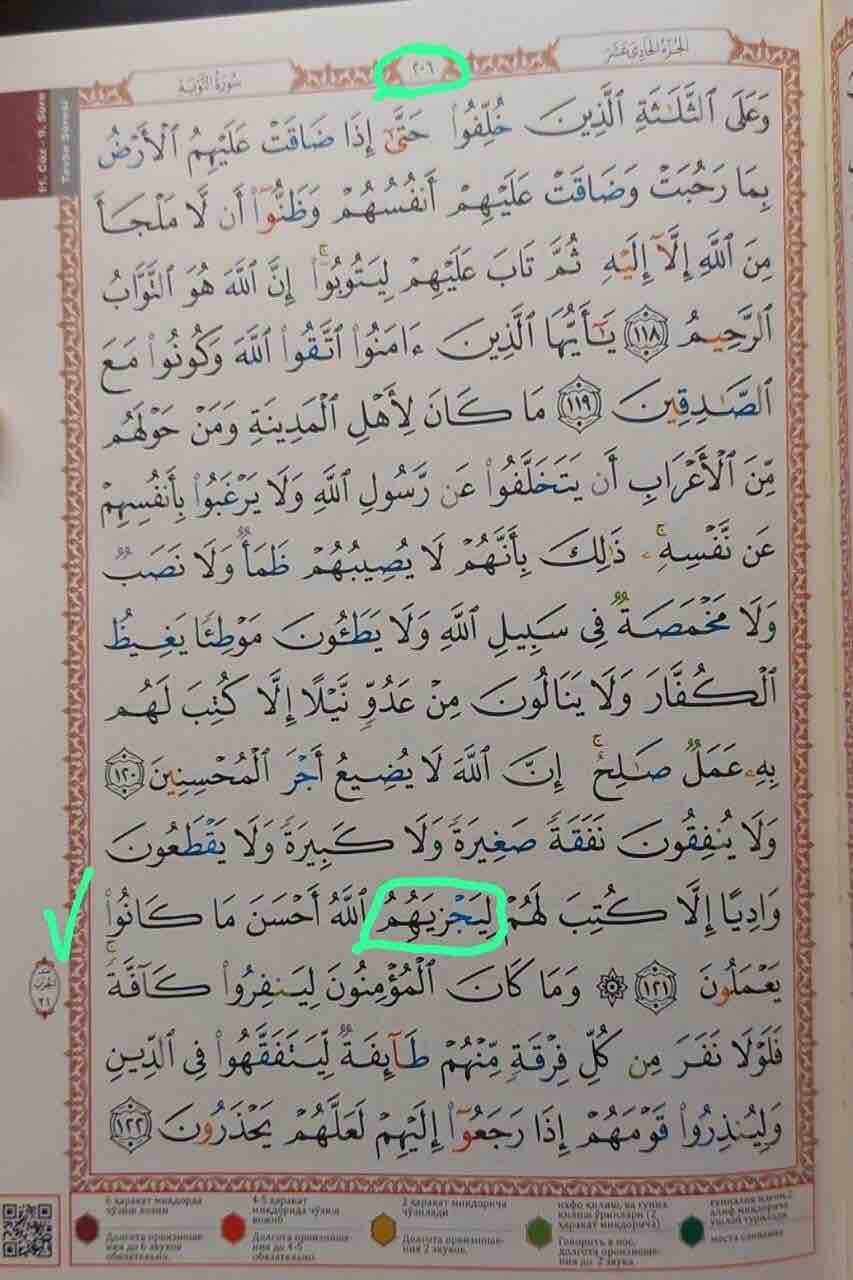 الجزء الحادي عشر
٢٠٦
سورة التوبة
11. Cüz - 9. Sure
Tevbe Suresi
وَعَلَى ٱلثَّلَٰثَةِ ٱلَّذِينَ خُلِّفُوا۟ حَتَّىٰٓ إِذَا ضَاقَتْ عَلَيْهِمُ ٱلْأَرْضُ
بِمَا رَحُبَتْ وَضَاقَتْ عَلَيْهِمْ أَنفُسُهُمْ وَظَنُّوٓا۟ أَن لَّا مَلْجَأَ
مِنَ ٱللَّهِ إِلَّآ إِلَيْهِ ثُمَّ تَابَ عَلَيْهِمْ لِيَتُوبُوٓا۟ ۚ إِنَّ ٱللَّهَ هُوَ ٱلتَّوَّابُ
ٱلرَّحِيمُ ١١٨ يَٰٓأَيُّهَا ٱلَّذِينَ ءَامَنُوا۟ ٱتَّقُوا۟ ٱللَّهَ وَكُونُوا۟ مَعَ
ٱلصَّٰدِقِينَ ١١٩ مَا كَانَ لِأَهْلِ ٱلْمَدِينَةِ وَمَنْ حَوْلَهُم
مِّنَ ٱلْأَعْرَابِ أَن يَتَخَلَّفُوا۟ عَن رَّسُولِ ٱللَّهِ وَلَا يَرْغَبُوا۟ بِأَنفُسِهِمْ
عَن نَّفْسِهِۦ ۚ ذَٰلِكَ بِأَنَّهُمْ لَا يُصِيبُهُمْ ظَمَأٌ وَلَا نَصَبٌ
وَلَا مَخْمَصَةٌ فِى سَبِيلِ ٱللَّهِ وَلَا يَطَـُٔونَ مَوْطِئًا يَغِيظُ
ٱلْكُفَّارَ وَلَا يَنَالُونَ مِنْ عَدُوٍّ نَّيْلًا إِلَّا كُتِبَ لَهُم
بِهِۦ عَمَلٌ صَٰلِحٌ ۚ إِنَّ ٱللَّهَ لَا يُضِيعُ أَجْرَ ٱلْمُحْسِنِينَ ١٢٠
وَلَا يُنفِقُونَ نَفَقَةً صَغِيرَةً وَلَا كَبِيرَةً وَلَا يَقْطَعُونَ
وَادِيًا إِلَّا كُتِبَ لَهُمْ لِيَجْزِيَهُمُ ٱللَّهُ أَحْسَنَ مَا كَانُوا۟
يَعْمَلُونَ ١٢١ ۞ وَمَا كَانَ ٱلْمُؤْمِنُونَ لِيَنفِرُوا۟ كَآفَّةً ۚ
فَلَوْلَا نَفَرَ مِن كُلِّ فِرْقَةٍ مِّنْهُمْ طَآئِفَةٌ لِّيَتَفَقَّهُوا۟ فِى ٱلدِّينِ
وَلِيُنذِرُوا۟ قَوْمَهُمْ إِذَا رَجَعُوٓا۟ إِلَيْهِمْ لَعَلَّهُمْ يَحْذَرُونَ ١٢٢
الحزب
٢١
6 ҳаракат миқдорда
чўзиш лозим
Долгота произноше-
ния до 6 звуков
обязательно.
4-5 ҳаракат
миқдорида чўзиш
вожиб
Долгота произноше-
ния до 4-5
обязательно
2 ҳаракат миқдорича
чўзилади
Долгота произноше-
ния 2 звуков.
ихфо қилиш, ва ғунна
қилиш ўринлари (2
ҳаракат миқдорича)
Говорить в нос,
долгота произноше-
ния до 2 звука